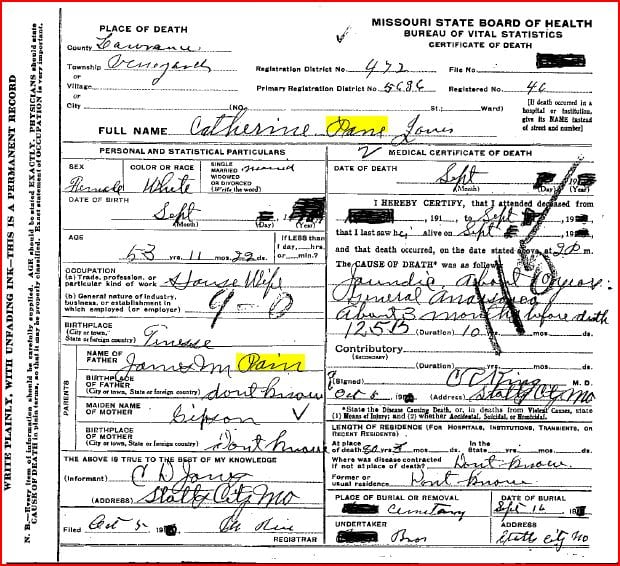 MISSOURI STATE BOARD OF HEALTH
BUREAU OF VITAL STATISTICS
CERTIFICATE OF DEATH
WRITE PLAINLY, WITH UNFADING INK—THIS IS A PERMANENT RECORD
N. B.—Every item of information should be carefully supplied. AGE should be stated EXACTLY. PHYSICIANS should state
CAUSE OF DEATH in plain terms, so that it may be properly classified. Exact statement of OCCUPATION is very important.
PLACE OF DEATH
County Lawrence
Township
or
Village
or
City (NO. St.; Ward)
Registration District No. 472 File No.
Primary Registration District No. 5686 Registered No. 46
[If death occurred in a
hospital or institution,
give its NAME instead
of street and number]
FULL NAME Catherine Pane Jones
PERSONAL AND STATISTICAL PARTICULARS
SEX
Female
COLOR OR RACE
White
SINGLE
MARRIED
WIDOWED
OR DIVORCED
(Write the word)
married
DATE OF BIRTH
Sept
(Month) (Day) (Year)
AGE
53 yrs. 11 mos. 22 ds.
If LESS than
1 day,....hrs.
or....min.?
OCCUPATION
(a) Trade, profession, or
particular kind of work House Wife
(b) General nature of industry,
business, or establishment in
which employed (or employer)
9-0
BIRTHPLACE
(City or town,
State or foreign country)
PARENTS
NAME OF
FATHER
James M Pain
BIRTHPLACE
OF FATHER
(City or town, State or foreign country) dont know
MAIDEN NAME
OF MOTHER
Gipson
BIRTHPLACE
OF MOTHER
(City or town, State or foreign country) Dont know
THE ABOVE IS TRUE TO THE BEST OF MY KNOWLEDGE
(Informant) C D Jones
(ADDRESS) City Mo
Filed Oct 5 191
REGISTRAR
2 MEDICAL CERTIFICATE OF DEATH
DATE OF DEATH
Sept
(Month) (Day) (Year)
I HEREBY CERTIFY, that I attended deceased from
191 , to Sept 191
that I last saw her alive on Sept 191
and that death occurred, on the date stated above, at m.
The CAUSE OF DEATH* was as follows:
Jaundice about
General
About 3 months before death
(Duration) 10
Contributory
(Secondary)
(Duration)
(Signed) C King M. D.
Oct 5 191 (Address) City Mo
*State the Disease Causing Death, or, in deaths from Violent Causes, state
(1) Means of Injury; and (2) whether Accidental, Suicidal, or Homicidal.
LENGTH OF RESIDENCE (FOR HOSPITALS, INSTITUTIONS, TRANSIENTS, OR
RECENT RESIDENTS)
At place
of death
In the
State
Where was disease contracted
if not at place of death? Dont know
Former or
usual residence Dont Know
PLACE OF BURIAL OR REMOVAL
Cemetary
DATE OF BURIAL
Sept 16 191
UNDERTAKER
Bros
ADDRESS
City Mo